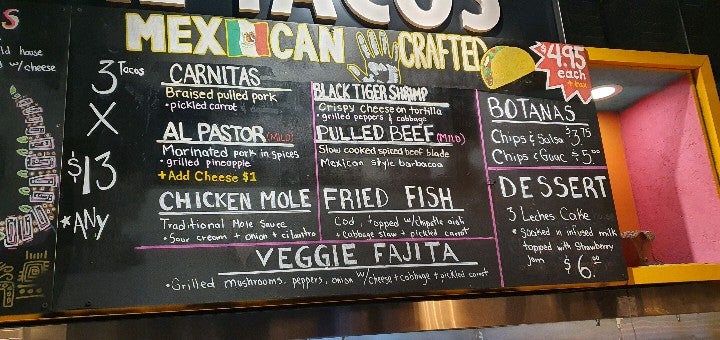 TACOS
MEXICAN CRAFTED
$4.95
each
+ tax
S
ld house
w/cheese
3 Tacos
X
$13
*ANY
CARNITAS
Braised pulled pork
• pickled carrot
AL PASTOR (MILD)
Marinated pork in spices
• grilled pineapple
+Add Cheese $1
CHICKEN MOLE
Traditional Mole Sauce
• Sour cream + onion + cilantro
BLACK TIGER SHRIMP
Crispy cheese on tortilla
• grilled peppers & cabbage
PULLED BEEF (MILD)
Slow cooked spiced beef blade
Mexican style barbacoa
FRIED FISH
Cod, topped w/chipotle aioli
+ cabbage slaw + pickled carrot
VEGGIE FAJITA
• Grilled mushrooms, peppers, onion w/cheese + cabbage + pickled carrot
BOTANAS
Chips & Salsa $3.75
Chips & Guac $5.00
DESSERT
3 Leches Cake
• soaked in infused milk
topped with Strawberry
jam $6.00